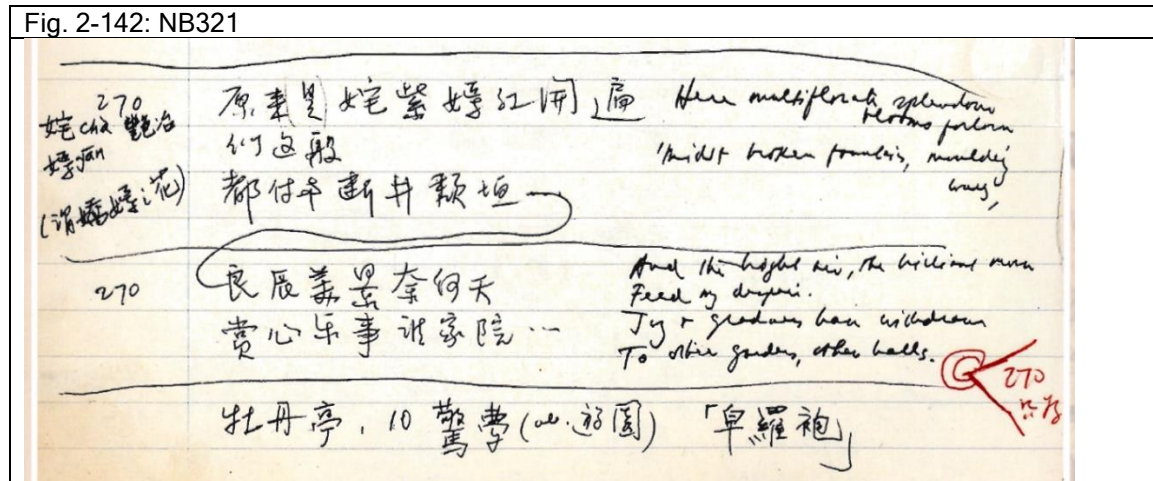 Fig. 2-142: NB321
270
姹 chà 艷冶
嫣 yān
(謂嬌嫣之花)
原来(是)姹紫嫣红開遍
似这般
都付与断井颓垣
Here multiflorate splendour
blooms forlorn
'midst broken fountains, mouldering
walls,
270
良辰美景奈何天
赏心乐事谁家院…
And the bright air, the brilliant morn
Feed my despair.
Joy & gladness have withdrawn
To other gardens, other halls.
270
牡丹亭, 10 驚夢 (游園) 「皁羅袍」